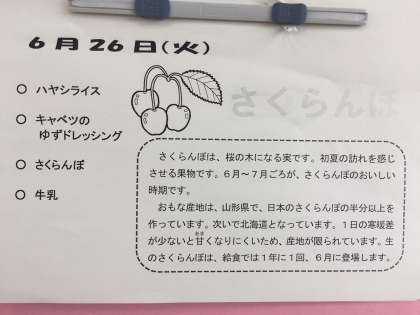 6月26日(火)
さくらんぼ
○ ハヤシライス
○ キャベツの
ゆずドレッシング
○ さくらんぼ
○ 牛乳
さくらんぼは、桜の木になる実です。初夏の訪れを感じ
させる果物です。6月～7月ごろが、さくらんぼのおいしい
時期です。
おもな産地は、山形県で、日本のさくらんぼの半分以上を
作っています。次いで北海道となっています。1日の寒暖差
が少ないと甘くなりにくいため、産地が限られています。生
のさくらんぼは、給食では1年に1回、6月に登場します。